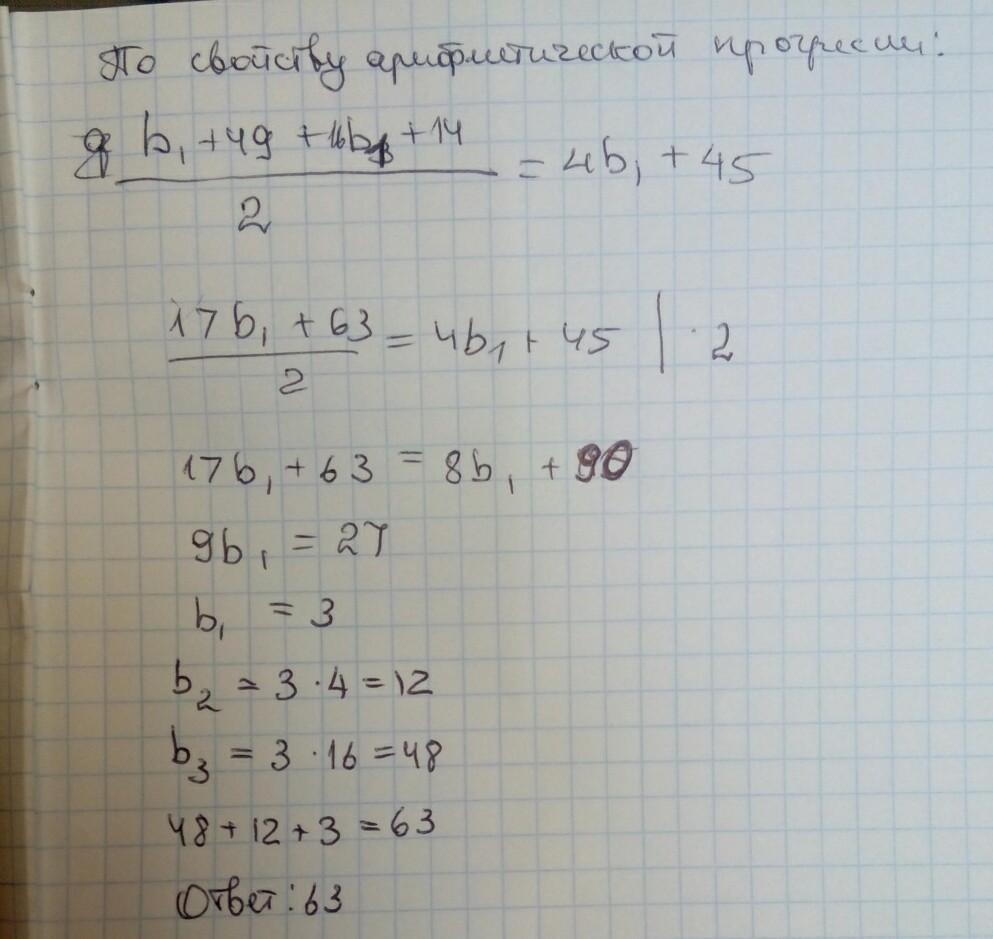 По свойству арифметической прогрессии:
b₁ + 49 + 16b₁ + 14
= 4b₁ + 45
2
17b₁ + 63
= 4b₁ + 45 | · 2
2
17b₁ + 63 = 8b₁ + 90
9b₁ = 27
b₁ = 3
b₂ = 3 · 4 = 12
b₃ = 3 · 16 = 48
48 + 12 + 3 = 63
Ответ: 63